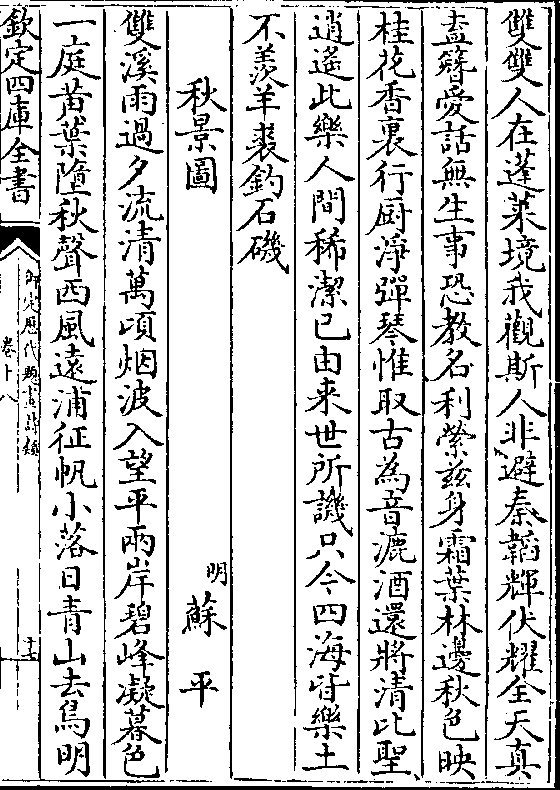 雙雙人在蓬萊境我觀斯人非避秦韜輝伏耀全天真
盍簪愛話無生事恐教名利縈兹身霜葉林邊秋色映
桂花香裏行厨淨彈琴惟取古為音漉酒還將清比聖
逍遙此樂人間稀潔已由来世所譏只今四海皆樂土
不羡羊裘釣石磯
秋景圖
明蘇平
雙溪雨過夕流清萬頃烟波入望平兩岸碧峰凝暮色
一庭黄葉墮秋聲西風遠浦征帆小落日青山去鳥明
欽定四庫全書
御定歷代題畫詩類
卷十八